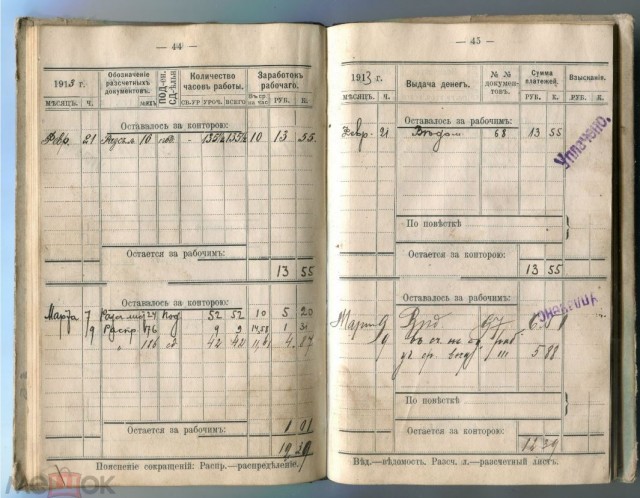 — 44 —
1913 г.
МѢСЯЦЪ.
Ч.
Обозначеніе разсчетныхъ документовъ.
ПОД-ОН. СД-ЬЛЬН
Количество часовъ работы.
УРОЧ.
ВСЕГО
Заработокъ рабочаго.
РУБ.
К.
Оставалось за конторою:
Февр. 21 10 135½ 135½ 10 13 55.
Остается за рабочимъ:
13 55
Оставалось за конторою:
Марта 7 52 52 10 5 20
9 Распр. 176 9 9 14,58 1 31
" 186 42 42 4.87
Остается за рабочимъ:
1 01
12 39
Поясненіе сокращеній: Распр.—распредѣленіе.
— 45 —
1913 г.
МѢСЯЦЪ.
Ч.
Выдача денегъ.
№ № документовъ.
Сумма платежей.
РУБ.
К.
Взысканія.
РУБ.
К.
Оставалось за рабочимъ:
Февр. 21 68 13 55
Уплачено.
По повѣсткѣ
Остается за конторою:
13 55
Оставалось за рабочимъ:
Уплачено
Марта 9 97 6.51
9
5 88
По повѣсткѣ
Остается за конторою:
12 39
Вѣд.—вѣдомость. Разсч. л.—разсчетный листъ.
МЕШОК